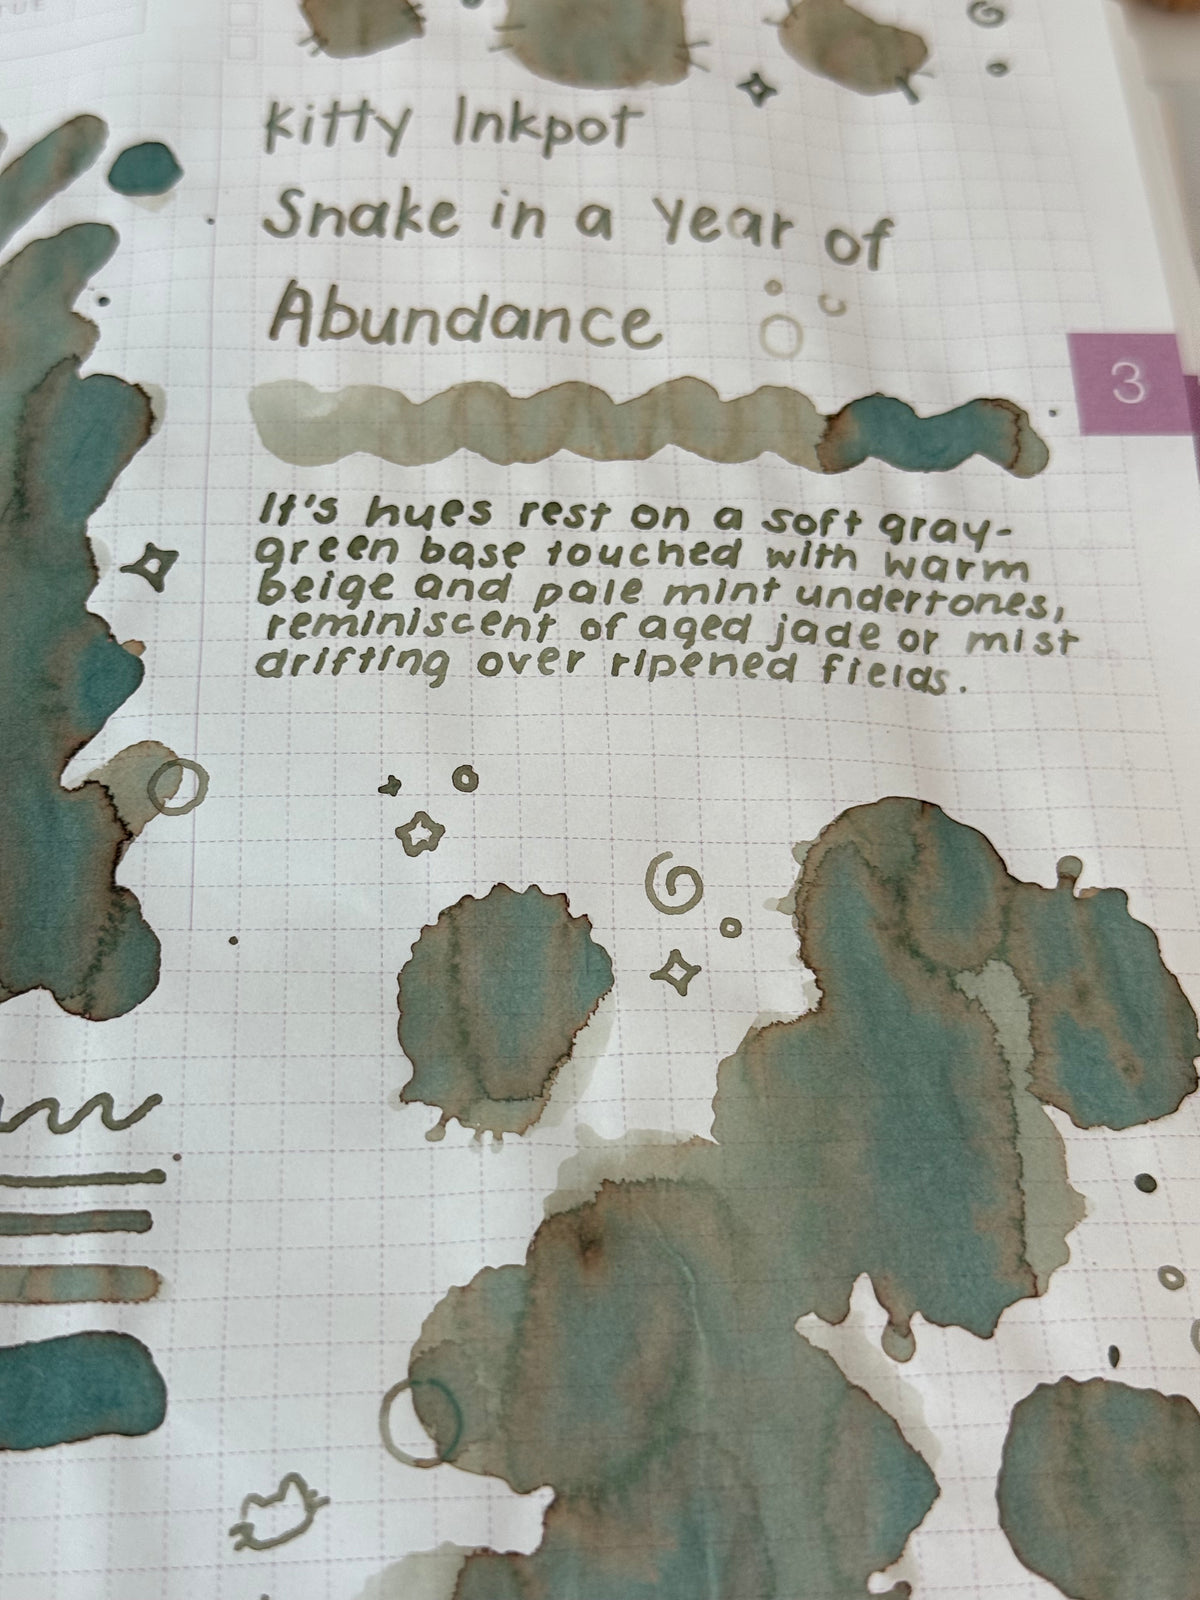 Kitty Inkpot
Snake in a Year of
Abundance
3
It's hues rest on a soft gray-
green base touched with warm
beige and pale mint undertones,
reminiscent of aged jade or mist
drifting over ripened fields.